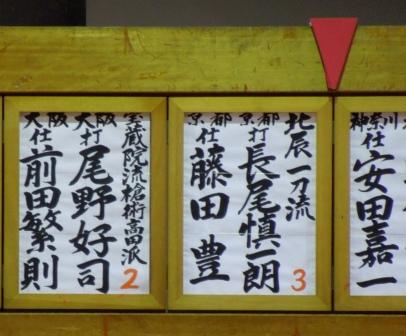 神奈川
仕 安田嘉一
北辰一刀流
京都
打 長尾慎一朗
京都
仕 藤田豊
3
宝蔵院流槍術高田派
大阪
打 尾野好司
大阪
仕 前田繁則
2